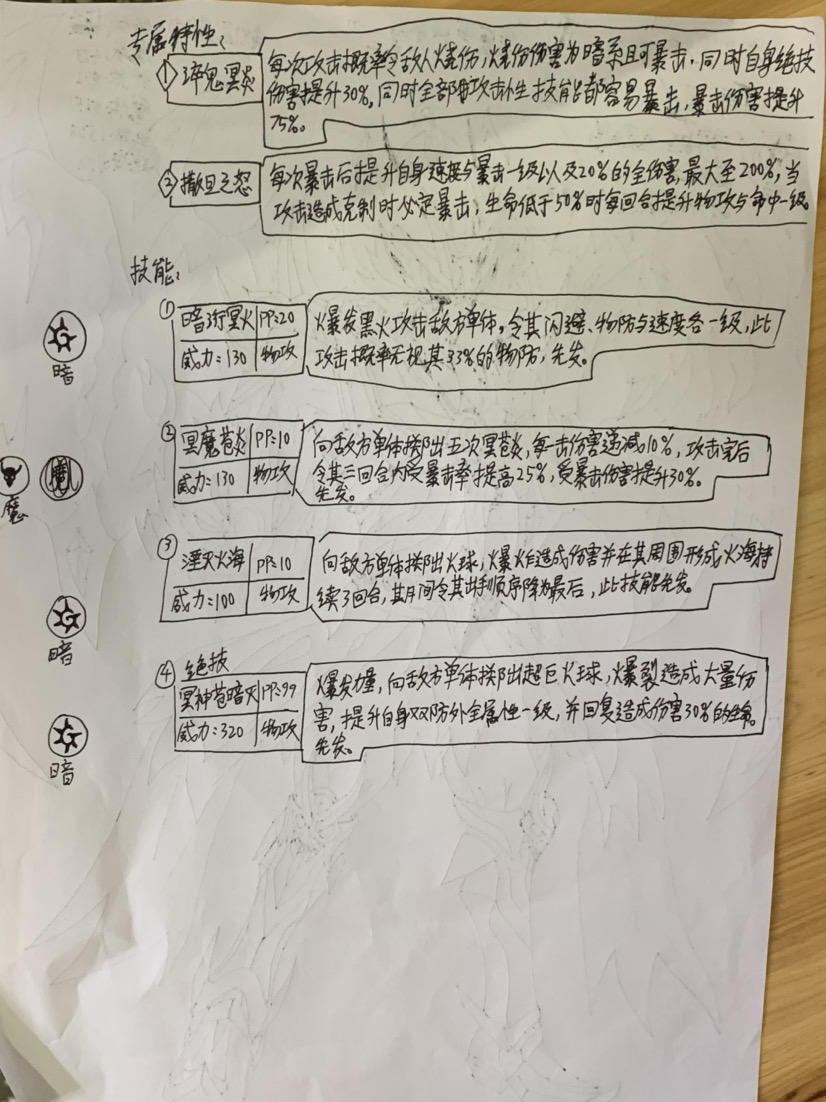 专属特性:
① 淬鬼冥炎
每次攻击概率令敌人烧伤,烧伤伤害为暗系且可暴击.同时自身绝技
伤害提升30%。同时全部攻击性技能都容易暴击,暴击伤害提升
75%。
② 撒旦之怒
每次暴击后提升自身速接与暴击一级以及20%的全伤害,最大至200%,当
攻击造成克制时必定暴击;生命低于50%时每回合提升物攻与命中一级。
技能:
①
暗 冥火 PP:20
威力:130 物攻
爆发黑火攻击敌方单体。令其闪避、物防与速度各一级,此
攻击概率无视其33%的物防,先发。
暗
②
冥魔苍炎 PP:10
威力:130 物攻
向敌方单体掷出五次冥苍炎,每一击伤害递减10%,攻击完后
令其三回合内受暴击率提高25%,受暴击伤害提升30%。
先发。
魔
魔
③
湮灭火海 PP:10
威力:100 物攻
向敌方单体掷出火球,爆炸造成伤害并在其周围形成火海持
续3回合,其间令其出手顺序降为最后,此技能先发。
暗
④ 绝技
冥神苍暗灭 PP:99
威力:320 物攻
爆发力量,向敌方单体掷出超巨火球,爆裂造成大量伤
害,提升自身双防外全属性一级,并回复造成伤害30%的生命。
先发。
暗